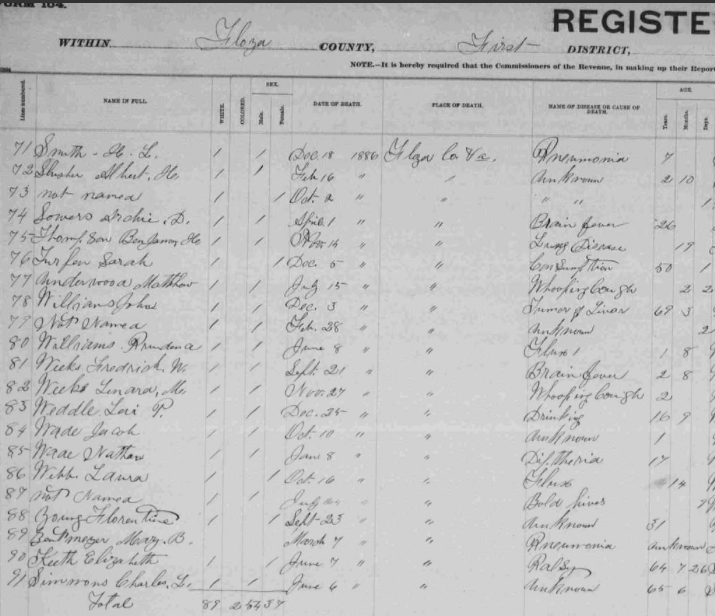 FORM 104.
REGISTE
WITHIN Floyd COUNTY, First DISTRICT,
NOTE.—It is hereby required that the Commissioners of the Revenue, in making up their Report
SEX. AGE.
Lines numbered. NAME IN FULL. WHITE. COLORED. Male. Female. DATE OF DEATH. PLACE OF DEATH. NAME OF DISEASE OR CAUSE OF DEATH. Years. Months. Days.
71 Smith - H. L. 1 1 Dec. 18 1886 Floyd Co Va. Pneumonia 7
72 Slusher Albert, H. 1 1 Feb 16 " " Unknown 2 10
73 not named 1 1 Oct 2 " " " " 1
74 Sowers Archie D. 1 1 April 1 " " Brain fever 26
75 Thompson Benjamin H. 1 1 Nov. 14 " " Lung Disease 19
76 Sarah 1 1 Dec. 5 " " Consumption 50 1
77 Underwood Matthew 1 1 July 15 " " Whooping Cough 2 2
78 Williams John 1 1 Dec. 3 " " Tumor of Liver 69 3
79 Not Named 1 1 Feb. 28 " " Unknown 2
80 Williams 1 1 June 8 " " Flux 1 8
81 Weeks Fredrick W. 1 1 Sept. 21 " " Brain fever 2 8
82 Weeks 1 1 Nov. 27 " " Whooping Cough 2
83 Weddle Levi P. 1 1 Dec. 25 " " Drinking 16 9
84 Wade Jacob 1 1 Oct. 10 " " Unknown 1
85 Wade Nathan 1 1 June 8 " " Diptheria 17
86 Webb Laura 1 1 Oct 16 " " Flux 14
87 not Named 1 1 July " " Bold hives
88 Young Florentine 1 1 Sept 23 " " Unknown 31
89 Mary B. 1 1 March 7 " " Pneumonia unknown
90 Keith Elizabeth 1 1 June 7 " " Palsy 64 7 26
91 Simmons Charles L. 1 1 June 6 " " Unknown 65 6
Total 89 2 54 37